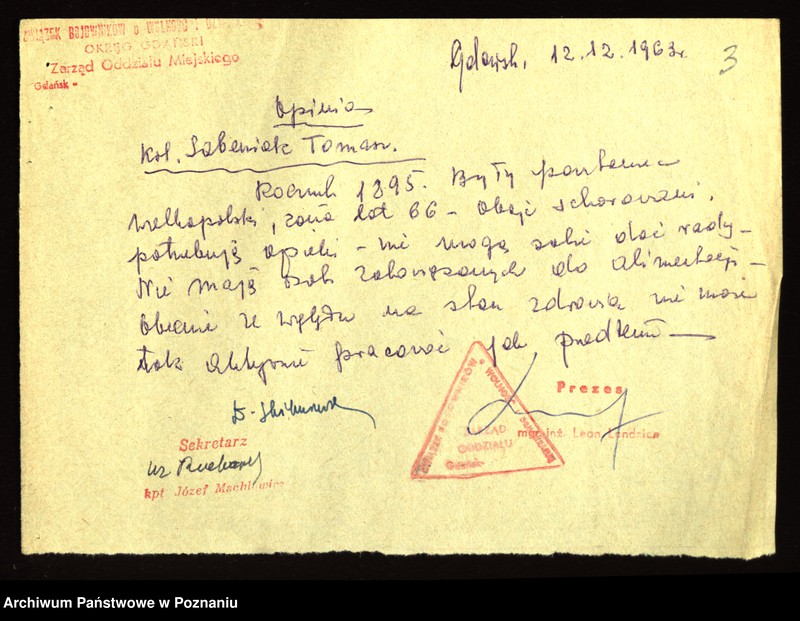 ZWIĄZEK BOJOWNIKÓW O WOLNOŚĆ I DEMOKRACJĘ
OKRĘG GDAŃSKI
Zarząd Oddziału Miejskiego
Gdańsk -
Gdańsk, 12.12.1963r.
3
Opinia
Kol. Tomasz.
Rocznik 1895. Były powstaniec
wielkopolski, żona lat 66 - oboje schorowani.
potrzebują opieki - nie mogą sobie dać rady -
Nie mają osób zobowiązanych do alimentacji -
Obecnie ze względu na stan zdrowia nie może
tak aktywnie pracować jak przedtem -
Sekretarz
kpt Józef
Prezes
mgr inż. Leon Lendzion
ZWIĄZEK BOJOWNIKÓW O WOLNOŚĆ I DEMOKRACJĘ
ZARZĄD
ODDZIAŁU
Gdańsk
Archiwum Państwowe w Poznaniu